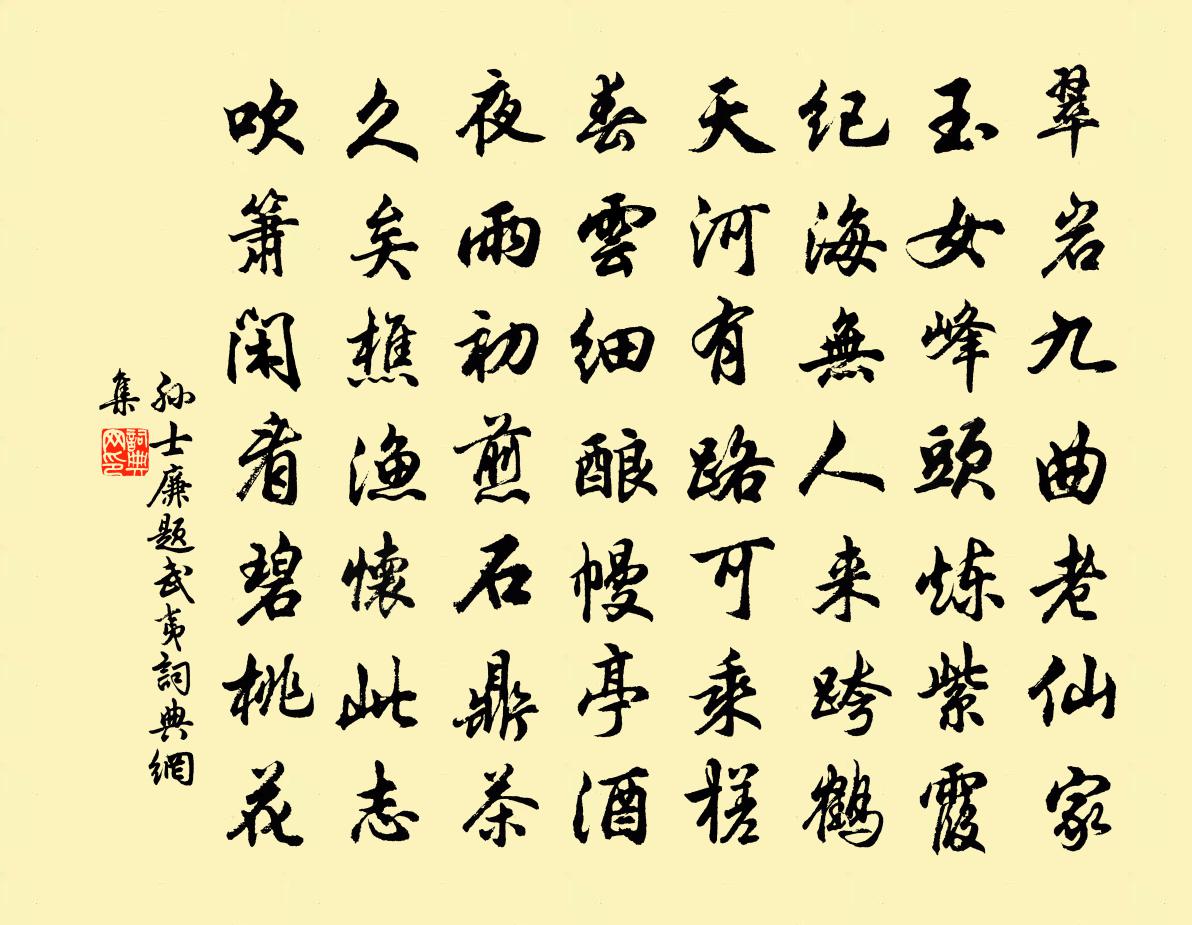 翠岩九曲老仙家
玉女峰頭炼紫霞
纪海無人来跨鶴
天河有路可乘槎
春雲细酿幔亭酒
夜雨初煎石鼎茶
久矣樵渔懷此志
吹箫閑看碧桃花
孙士廉題武夷詞典網
集
詞典
网印